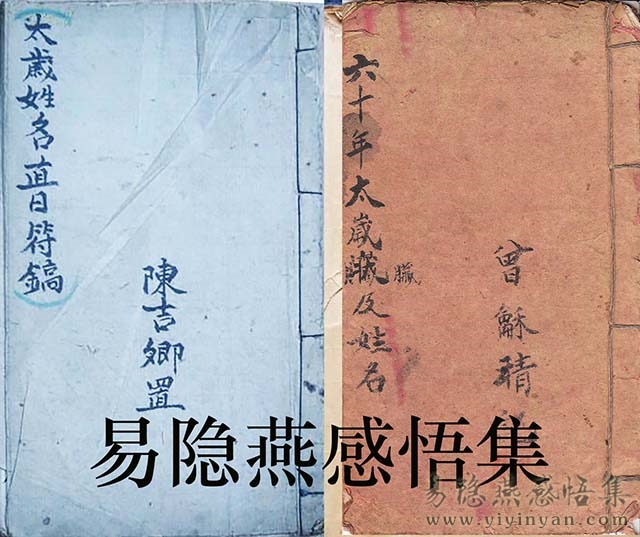 太歳姓名直日符鎬
陳吉卿置
六十年太歲臟及姓名
臟
曾龢
易隐燕感悟集
易隐燕感悟集
www.yiyinyan.com